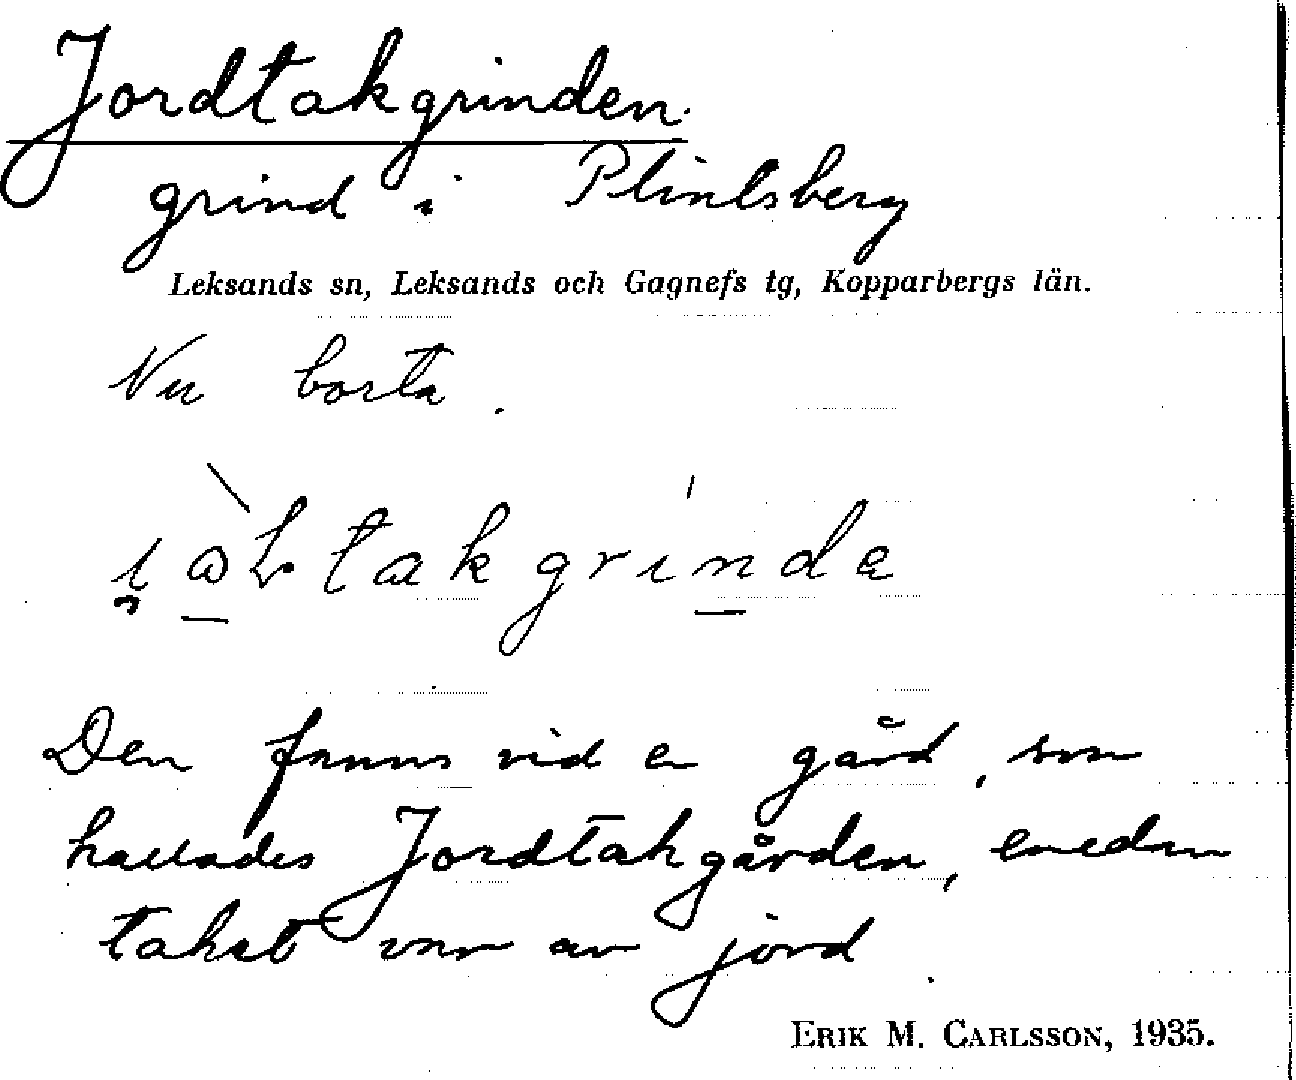 Jordtakgrinden.
grind i Plintsberg
Leksands sn, Leksands och Gagnefs tg, Kopparbergs län.
Nu borta.
Den fanns vid en gård, som
kallades Jordtakgården, emedan
taket var av jord.
ERIK M. CARLSSON, 1935.